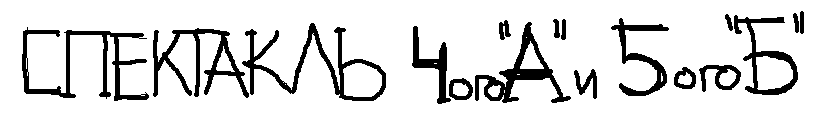 СПЕКТАКЛЬ 4ого "А" и 5ого "Б"